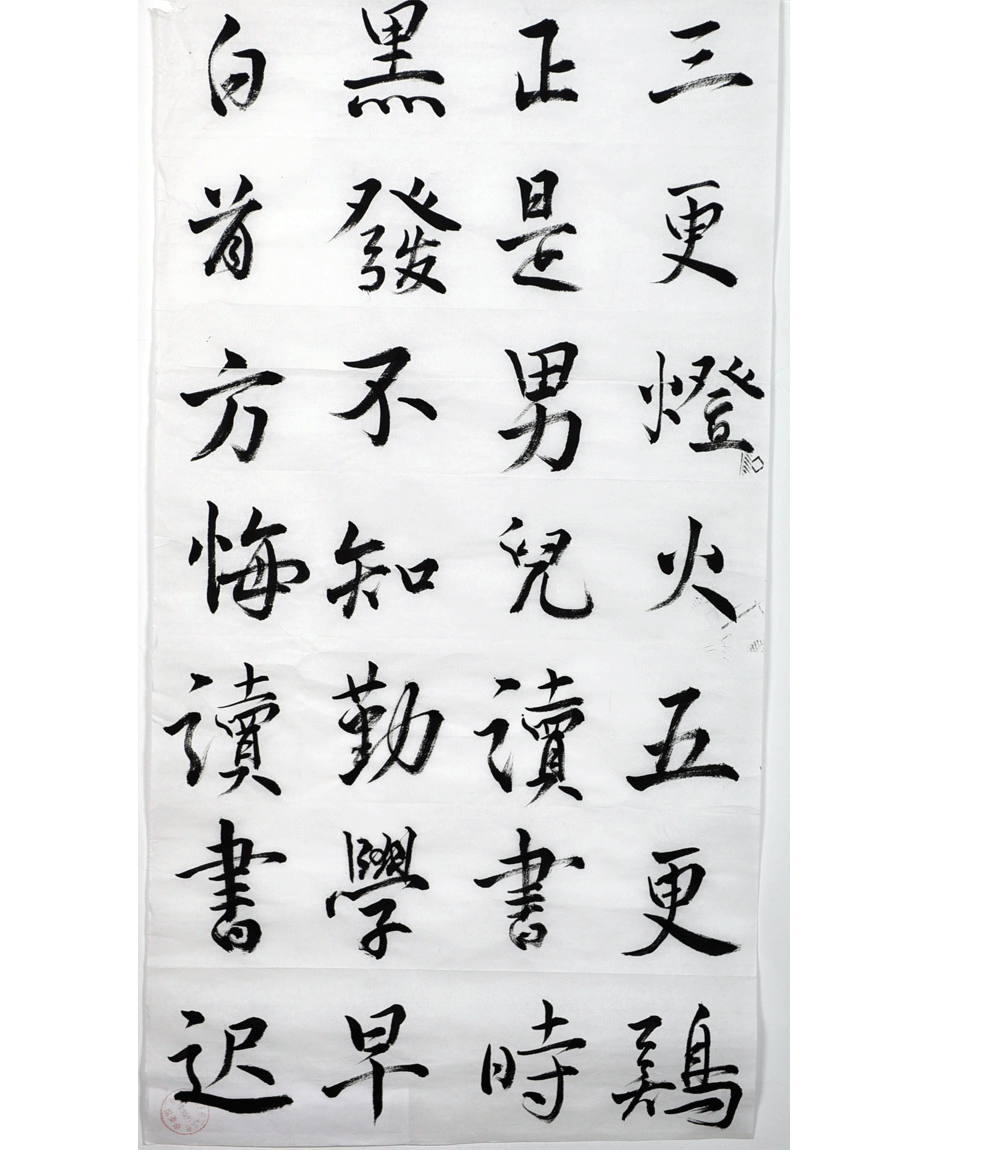 三更燈火五更鷄
正是男兒讀書時
黑發不知勤學早
白首方悔讀書迟